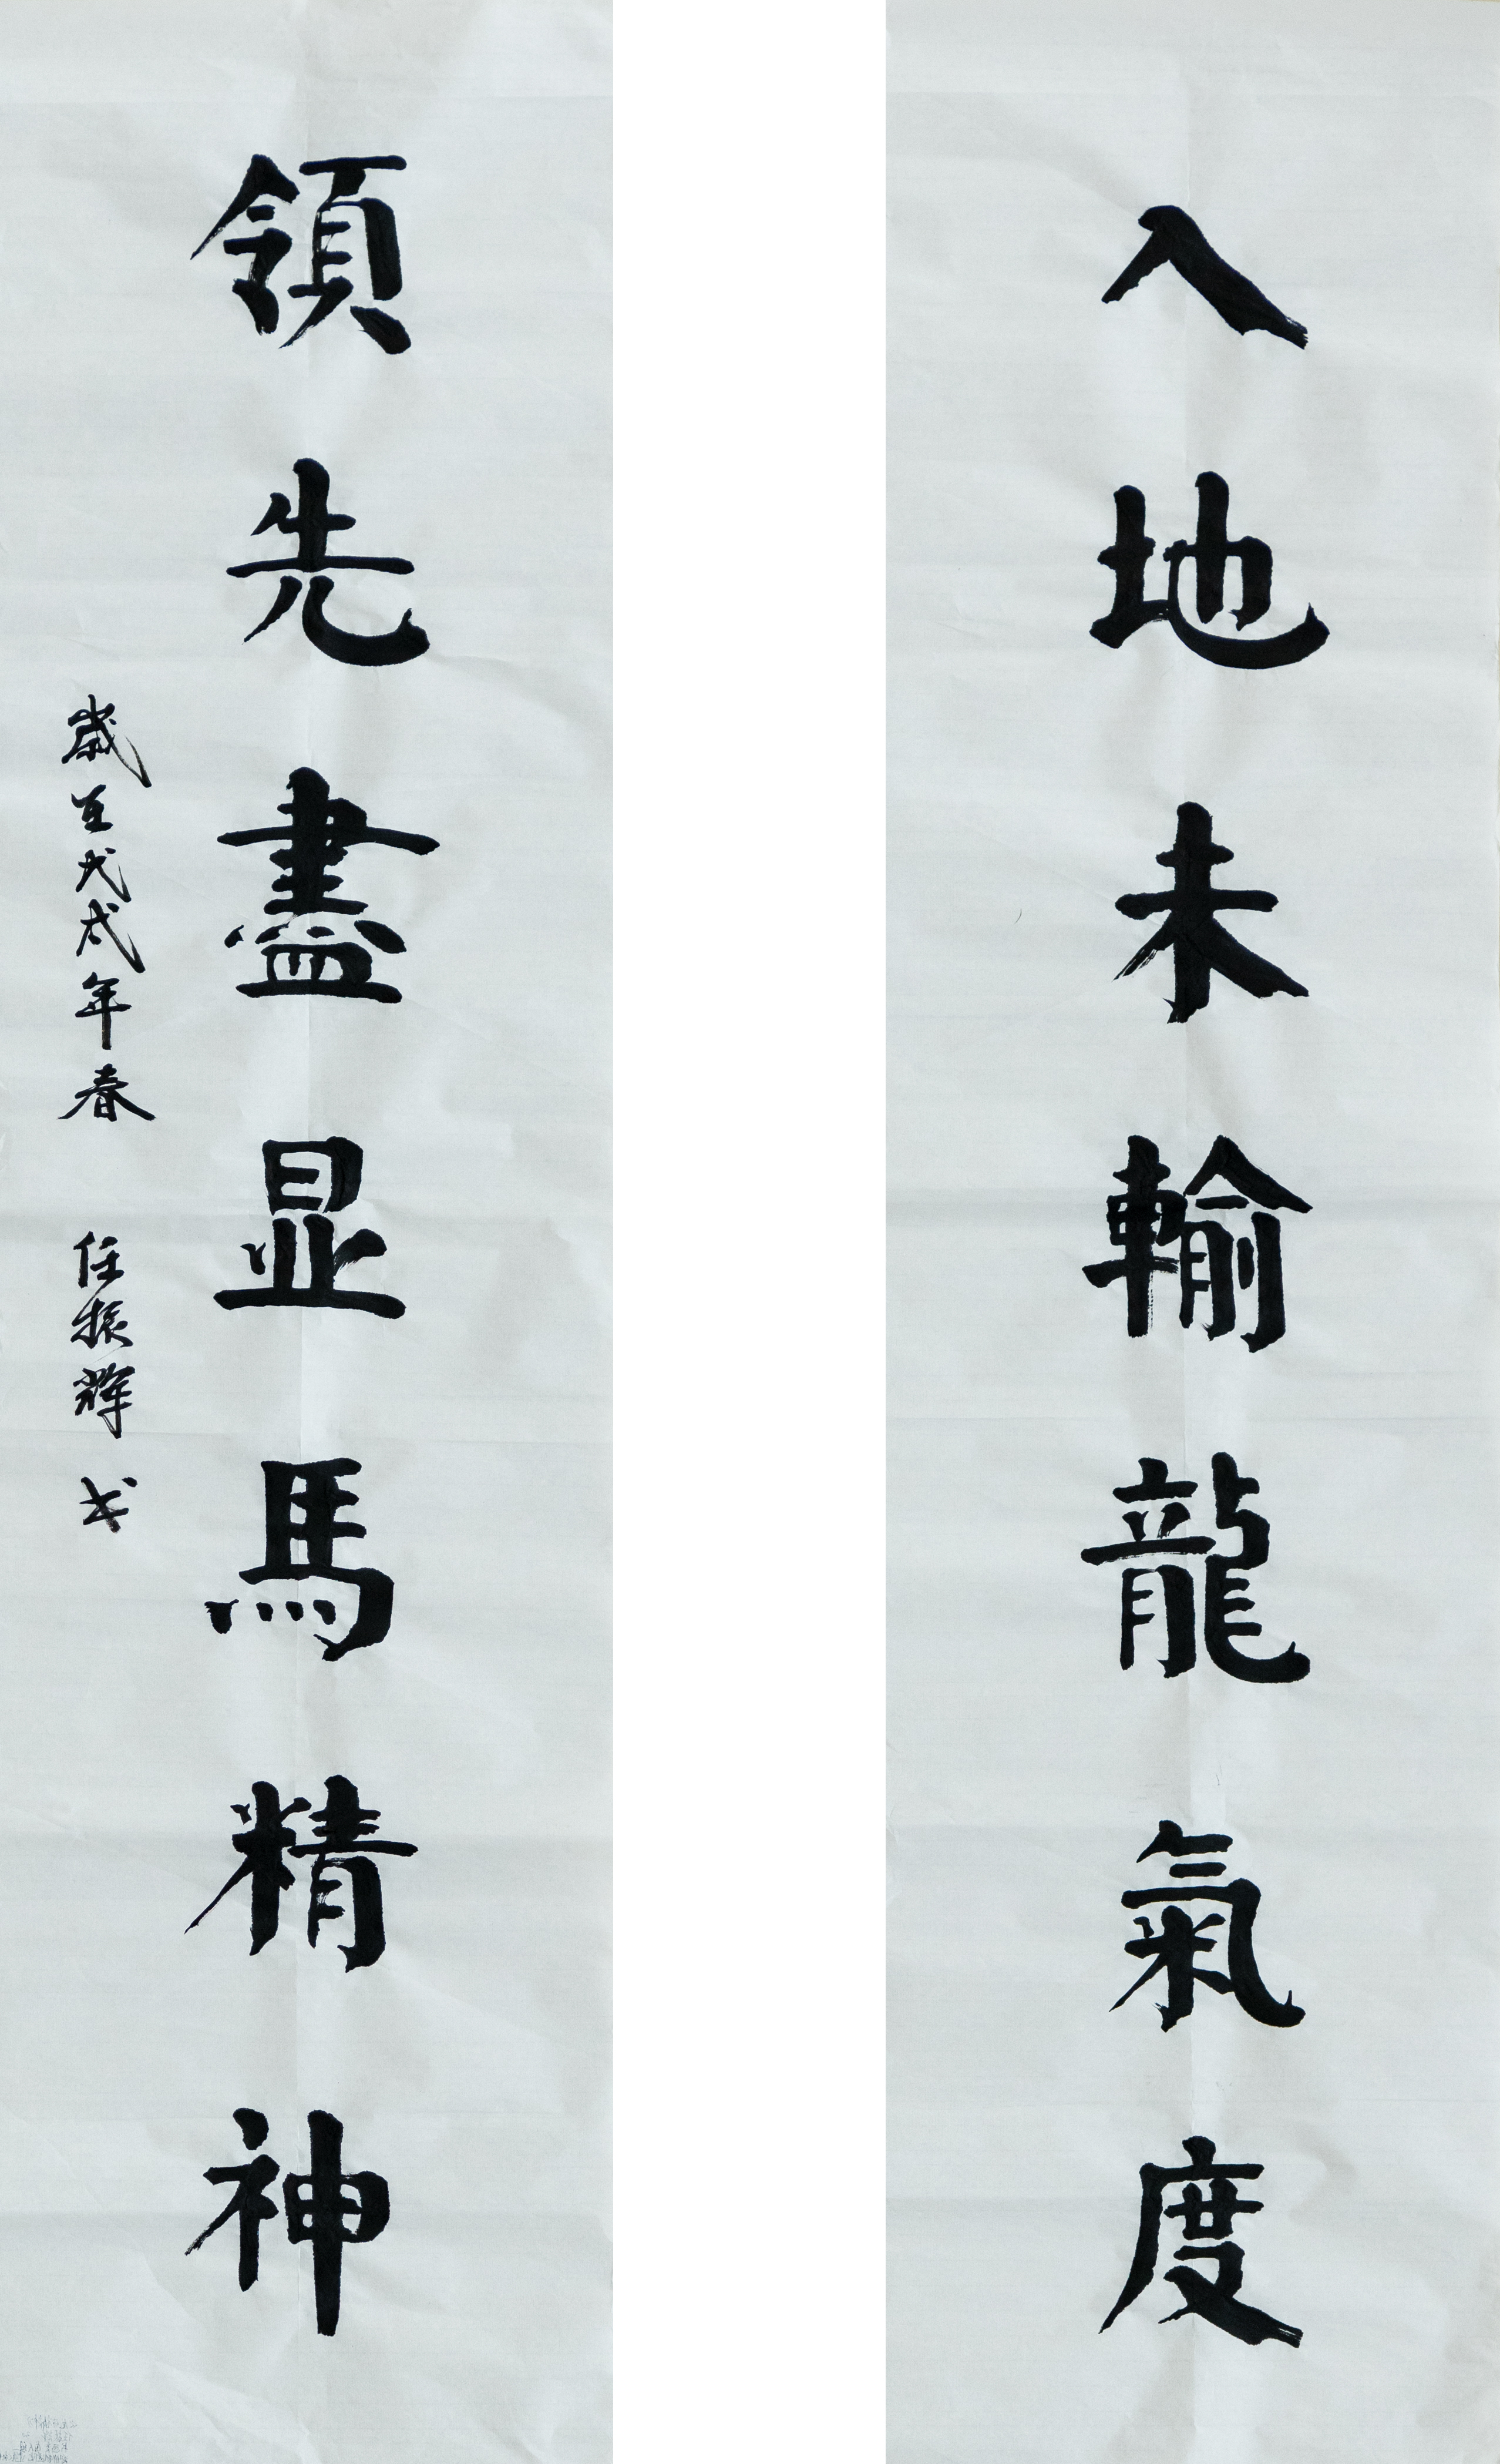 入地未輸龍氣度
領先盡显馬精神
歲在戊戌年春 任振輝书